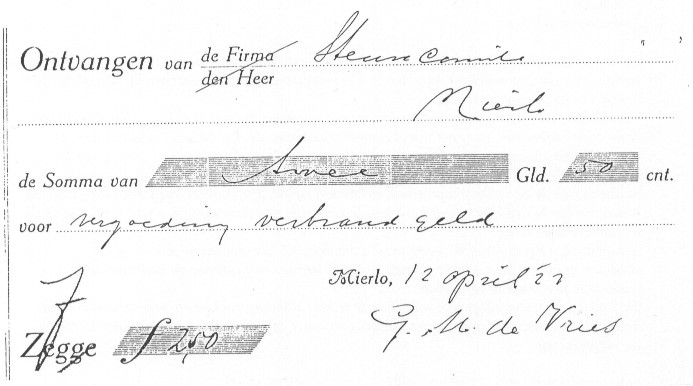 Ontvangen van de Firma Steuncomité
den Heer
Mierlo
de Somma van twee Gld. 50 cnt.
voor vergoeding verbrand geld
Mierlo, 12 april '22
Zegge f 2,50
G. M. de Vries